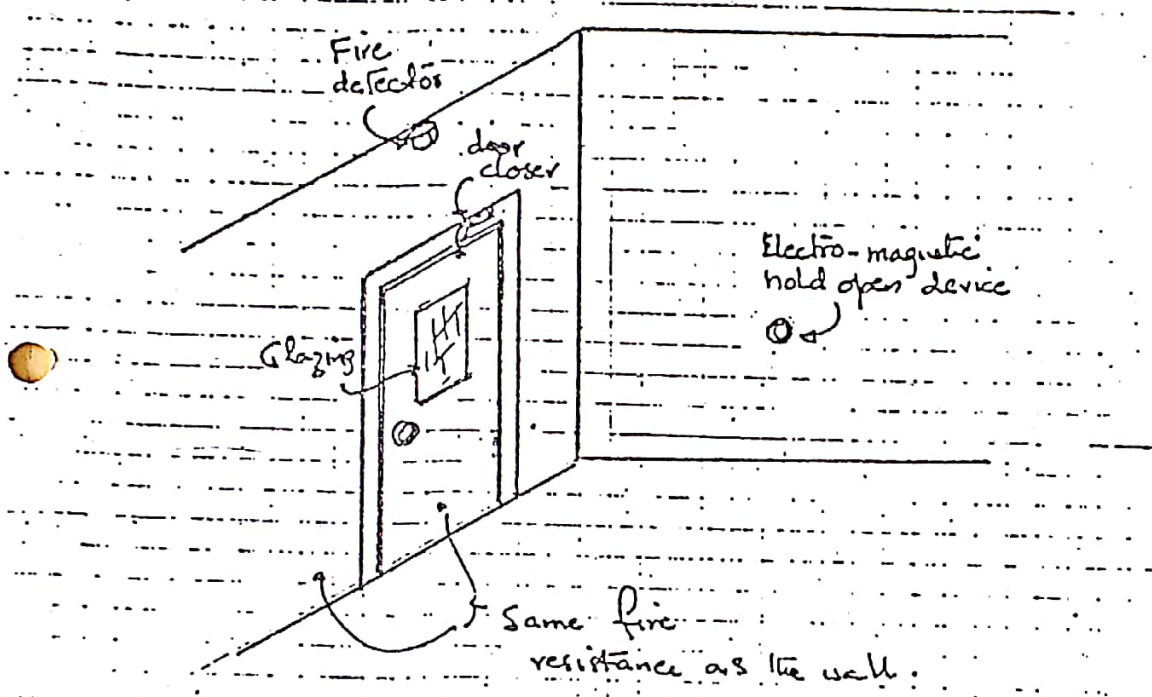 Fire
detector
door
closer
Electro-magnetic
hold open device
Glazing
Same fire
resistance as the wall.